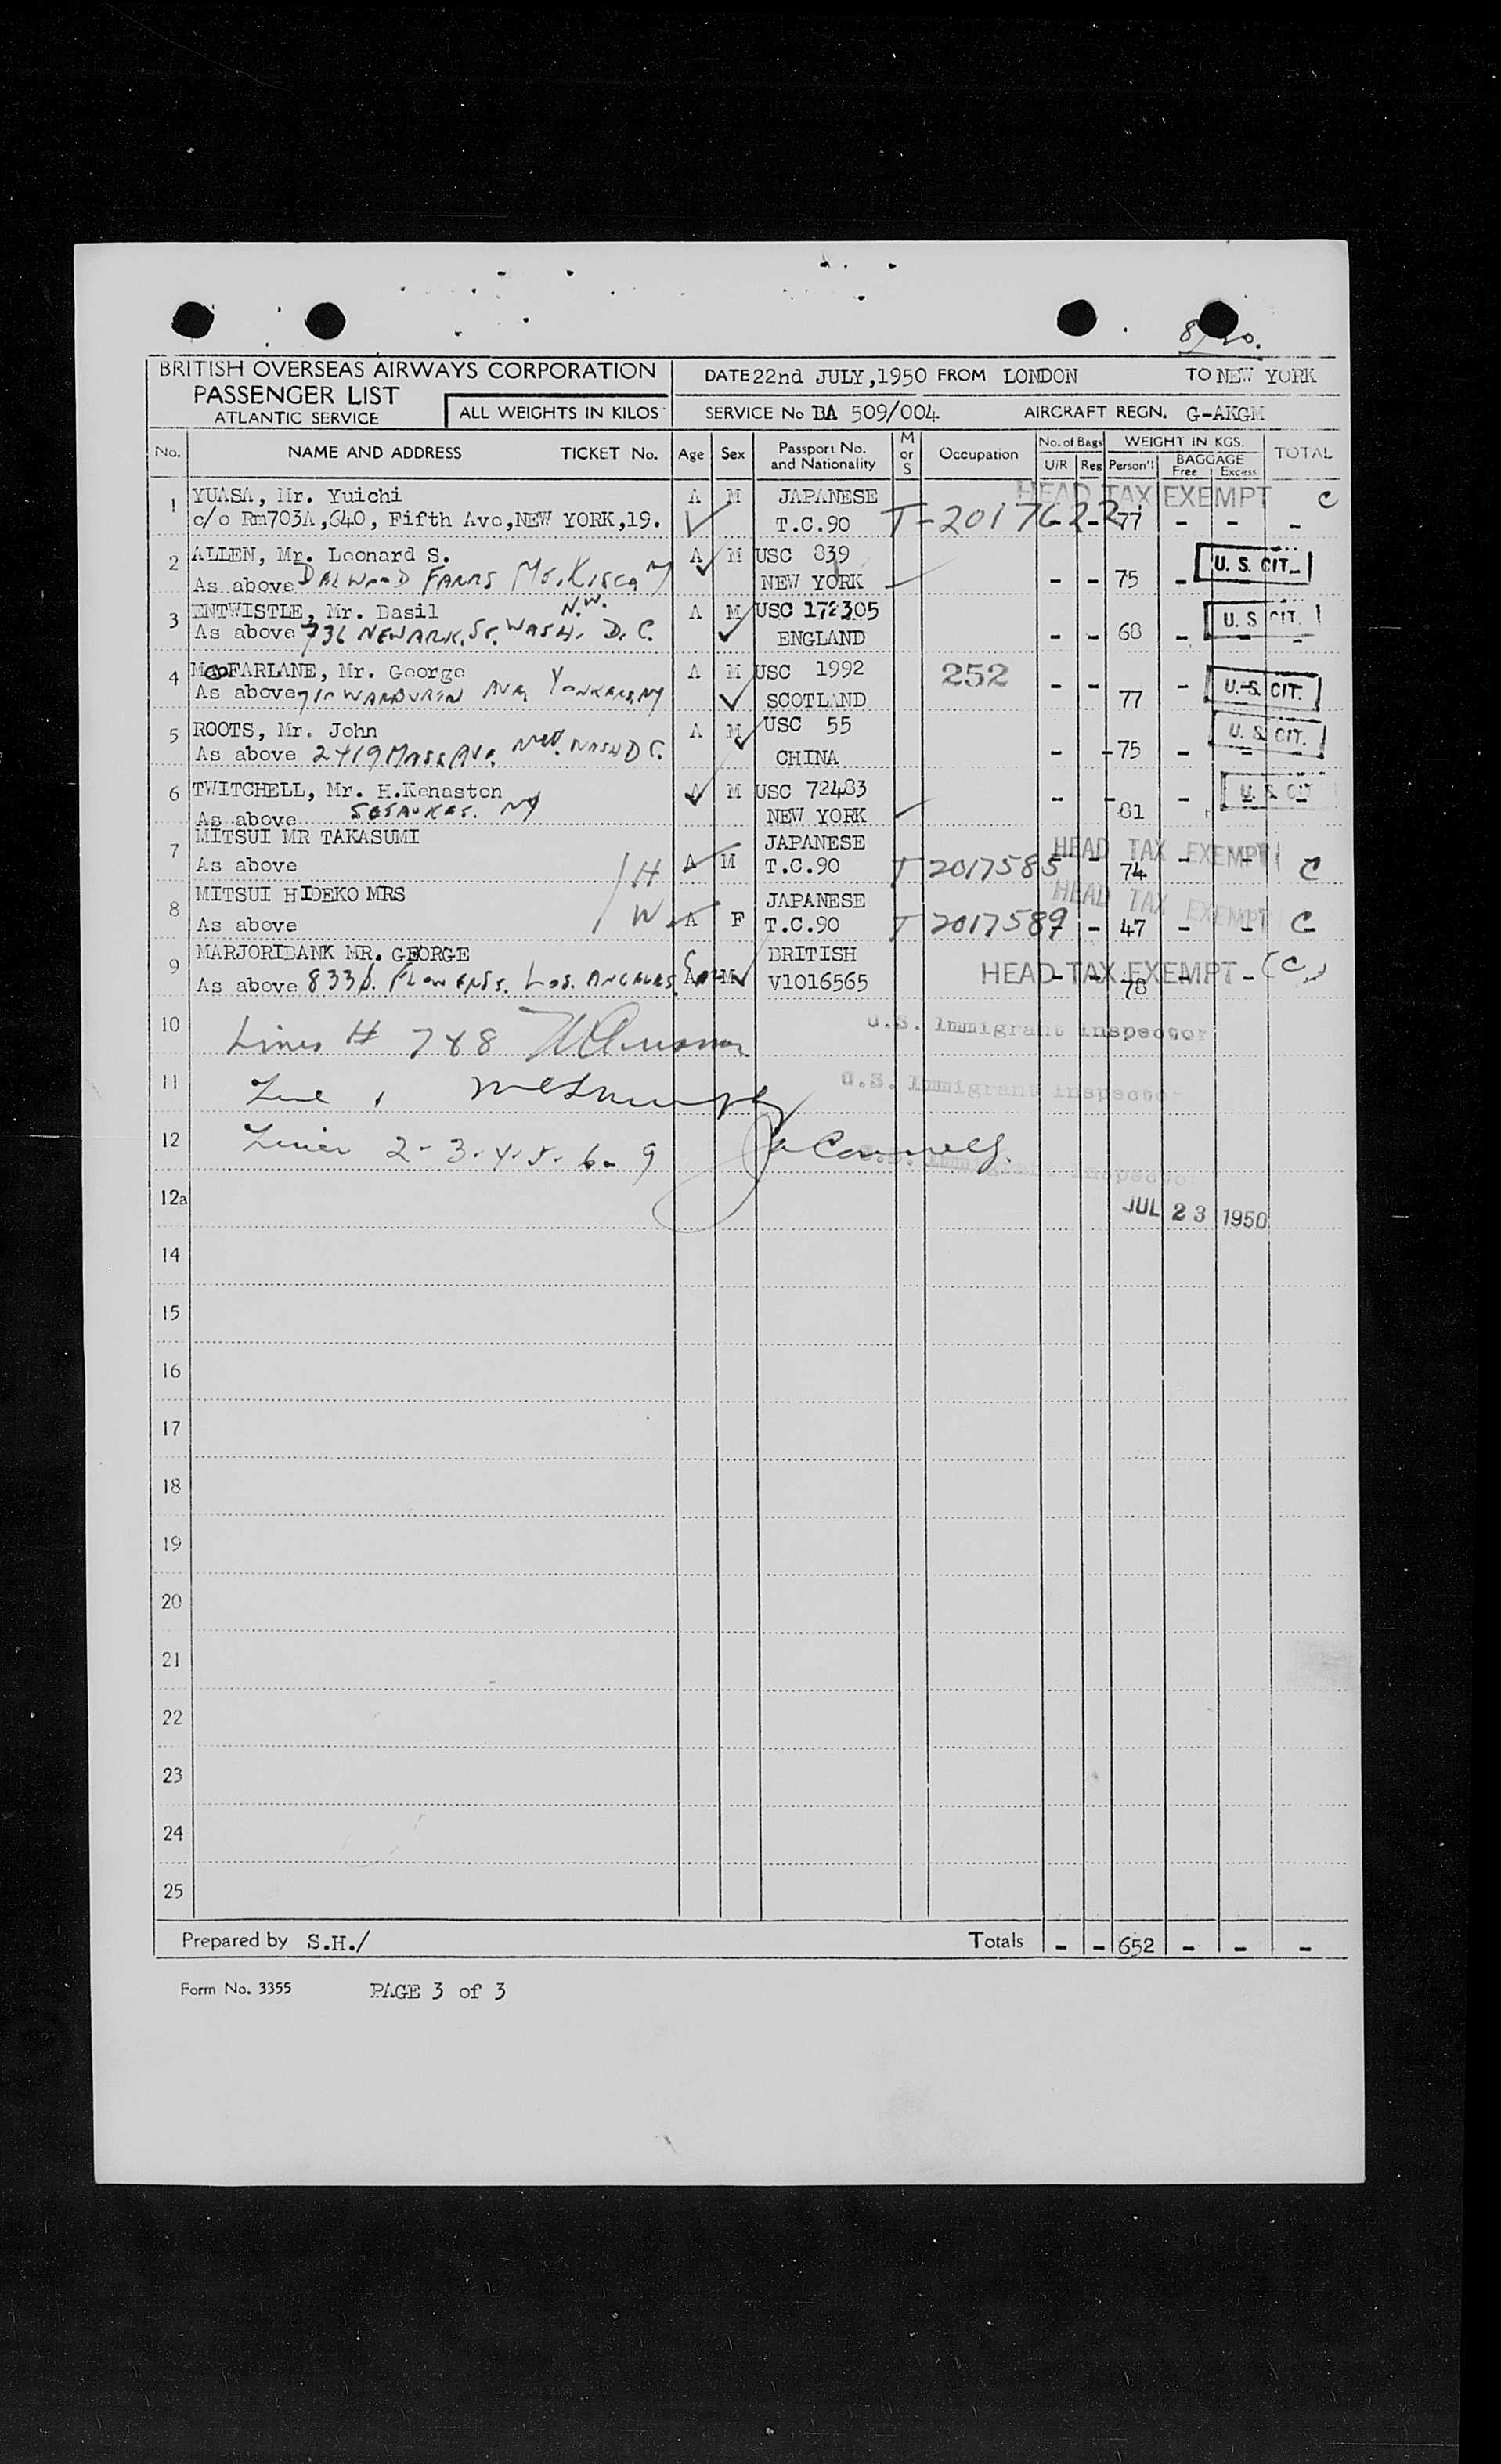 8/20.
BRITISH OVERSEAS AIRWAYS CORPORATION
PASSENGER LIST
ATLANTIC SERVICE
ALL WEIGHTS IN KILOS
DATE 22nd JULY, 1950 FROM LONDON TO NEW YORK
SERVICE No BA 509/004 AIRCRAFT REGN. G-AKGM
No. NAME AND ADDRESS TICKET No. Age Sex Passport No. and Nationality M or S Occupation No. of Bags U/R Reg WEIGHT IN KGS. Person'l BAGGAGE Free Excess TOTAL
1 YUASA, Mr. Yuichi A M JAPANESE HEAD TAX EXEMPT C
c/o Rm703A, 640, Fifth Ave, NEW YORK, 19. T.C.90 T-2017622 - - 77 - - -
2 ALLEN, Mr. Leonard S. A M USC 839 U. S. CIT.
As above DALWOOD FARMS MT. KISCO NY NEW YORK - - 75 - -
3 ENTWISTLE, Mr. Basil N.W. A M USC 172305 U. S. CIT.
As above 736 NEWARK. ST. WASH. D.C. ENGLAND - - 68 - - -
4 MacFARLANE, Mr. George A M USC 1992 252 U. S. CIT.
As above AVE YONKERS, NY SCOTLAND - - 77 -
5 ROOTS, Mr. John A M USC 55 U. S. CIT.
As above 2419 MASS AVE. NW. WASH D C. CHINA - - 75 - - -
6 TWITCHELL, Mr. H.Kenaston A M USC 72483 U. S. CIT
As above SETAUKET. NY NEW YORK - - 81 - - -
7 MITSUI MR TAKASUMI JAPANESE HEAD TAX EXEMPT
As above H A M T.C.90 T 2017585 - - 74 - - C
8 MITSUI HIDEKO MRS JAPANESE HEAD TAX EXEMPT
As above W A F T.C.90 T 2017589 - - 47 - - C
9 MARJORIBANK MR. GEORGE BRITISH HEAD TAX EXEMPT (C)
As above 833 S. FLOWER ST. LOS. ANGELES. A M V1016565 - - 78 - -
10 Lines # 7 & 8 U.S. Immigrant Inspector
11 Line 1 U.S. Immigrant Inspector
12 Lines 2-3-4-5-6-9 U.S. Immigrant Inspector
12a JUL 23 1950
14
15
16
17
18
19
20
21
22
23
24
25
Prepared by S.H./ Totals - - 652 - - -
Form No. 3355 PAGE 3 of 3